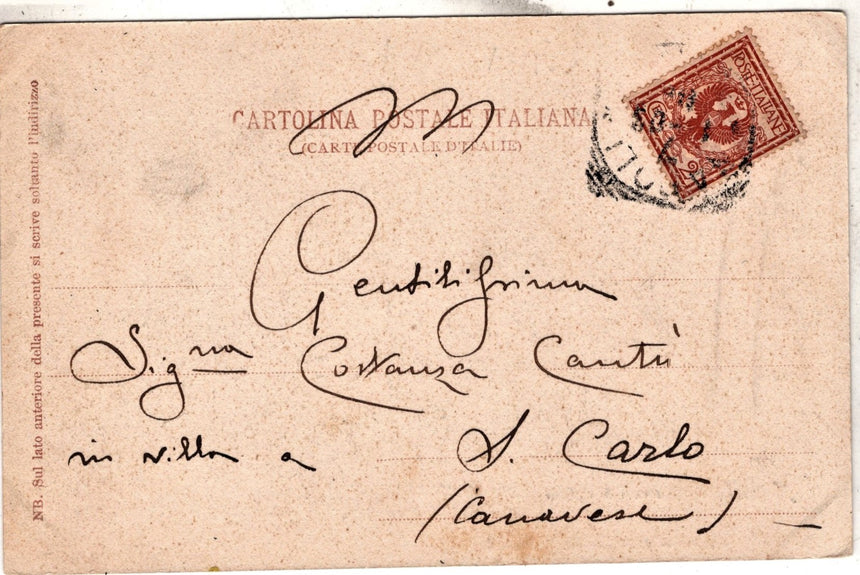 CARTOLINA POSTALE ITALIANA
(CARTE POSTALE D'ITALIE)
POSTE·ITALIANE
NB. Sul lato anteriore della presente si scrive soltanto l'indirizzo
Gentilissima
Sigⁿᵃ Costanza Cantù
in villa a S. Carlo
(Canavese)